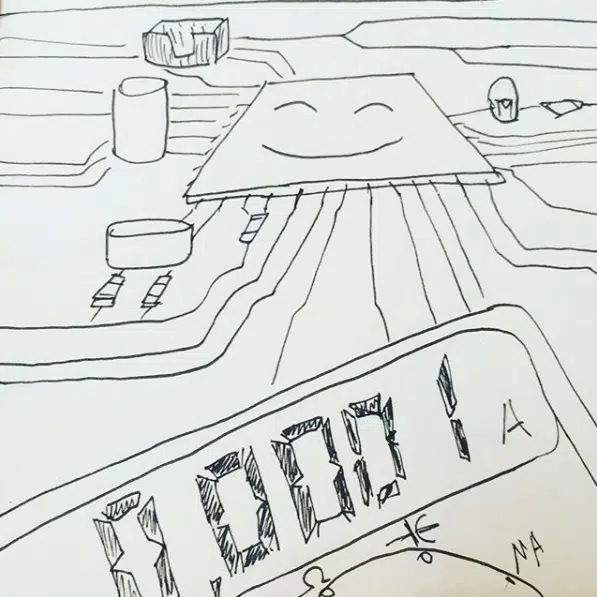 0.0001 A
MA